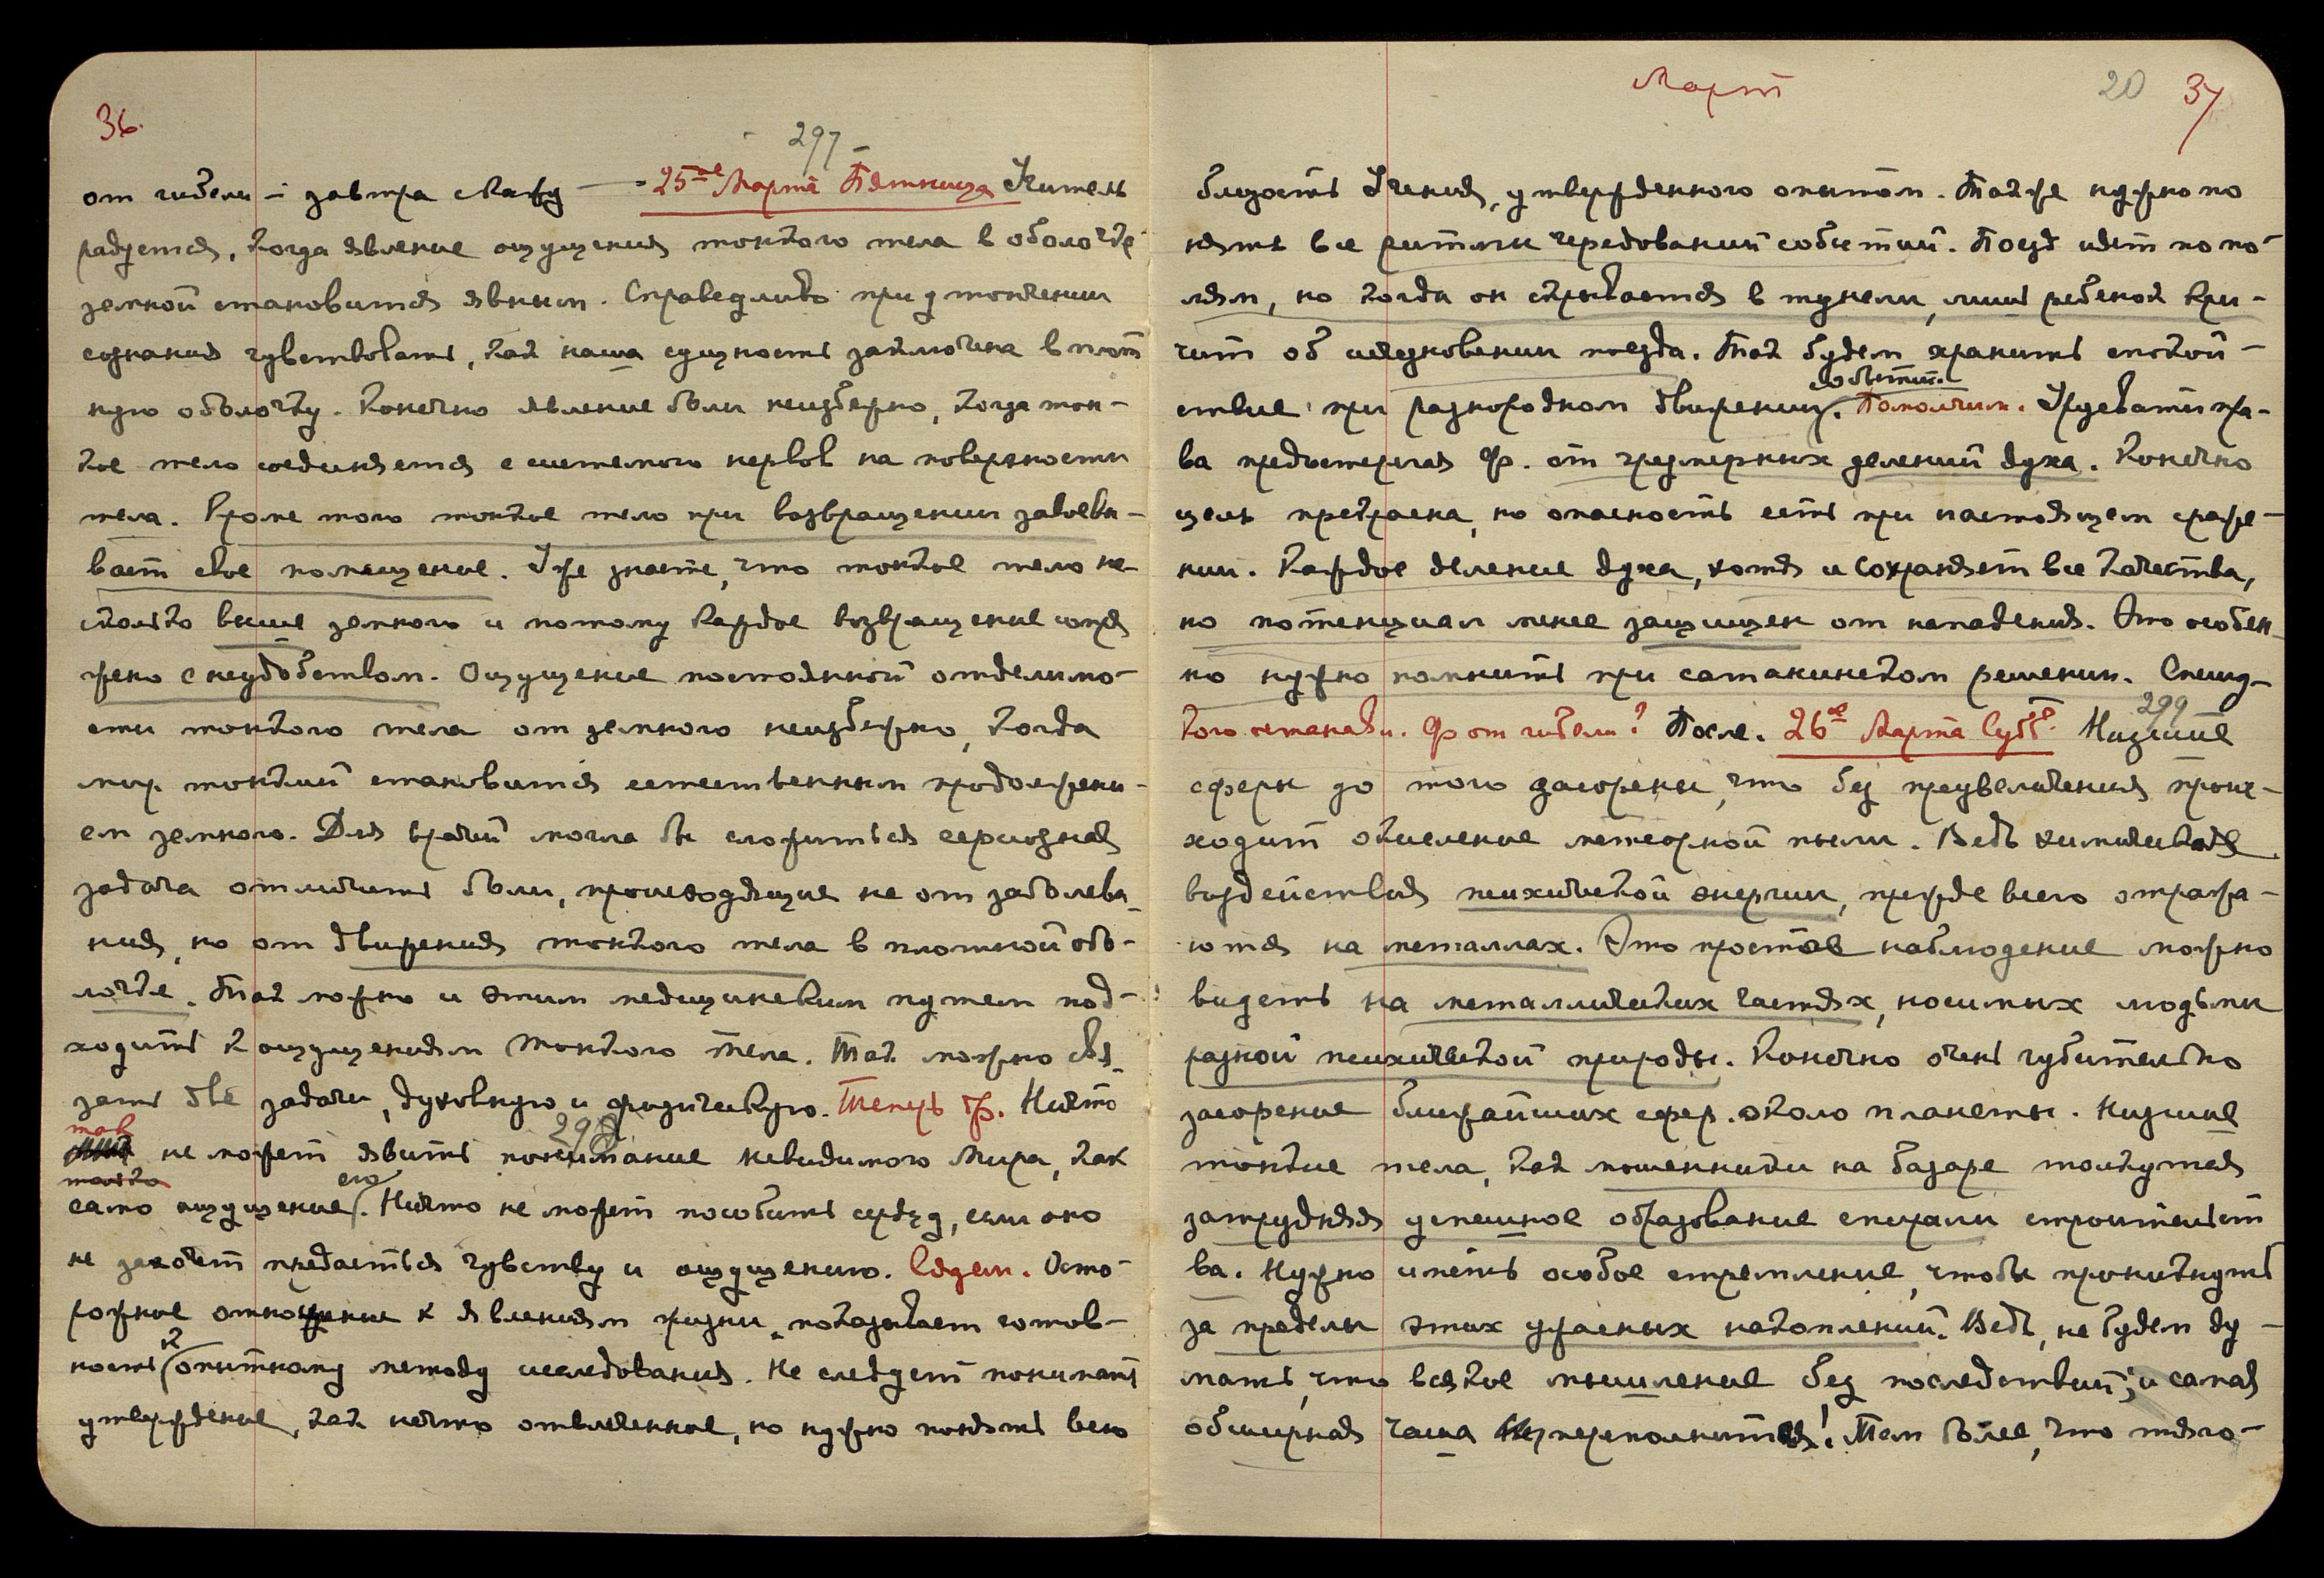 36.
297
от гибели – завтра скажу — 25ое Марта Пятница Учитель
радуется, когда явление ощущения тонкого тела в оболочке
земной становится явным. Справедливо при утончении
сознания чувствовать, как наша сущность заключена в плот
ную оболочку. Конечно явление боли неизбежно, когда тон-
кое тело соединяется с системою нервов на поверхности
тела. Кроме того тонкое тело при возвращении завоевы-
вает свое помещение. Уже знаете, что тонкое тело не-
сколько выше земного и потому каждое возвращение сопря
жено с неудобством. Ощущение постоянной отделимо-
сти тонкого тела от земного неизбежно, когда
мир тонкий становится естественным продолжени-
ем земного. Для врачей могла бы сложиться серьозная
задача отличить боли, происходящие не от заболева-
ния, но от движения тонкого тела в плотной обо-
лочке. Так можно и этим медицинским путем под-
ходить к ощущениям тонкого тела. Так можно свя-
зать две задачи, духовную и физическую. Теперь др. Ничто
так
298
не может явить понимание невидимого Мира, как
только
его
само ощущение. Ничто не может пособить сердцу, если оно
не захочет предаеться чувству и ощущению. Сядем. Осто-
рожное отношение к явлениям жизни, показывает готов-
к
ность опытному методу исследования. Не следует понимать
утверждение, как нечто отвлеченное, но нужно понять всю
Март
20 37
близость Учения, утвержденного опытом. Также нужно по
нять все ритмы чередований событий. Поезд идет по по-
лям, но когда он скрывается в тунели, лишь ребенок кри-
чит об исчезновении поезда. Так будем хранить спокой-
событий.
ствие при разнородном движении. Помолчим. Урусвати пра-
ва предостерегая Ф. от чрезмерных делений духа. Конечно
цель прекрасна, но опасность есть при настоящем сраже-
нии. Каждое деление духа, хотя и сохраняет все качества,
но потенциал менее защищен от нападения. Это особен-
но нужно помнить при сатанинском решении. Спешу-
299
кого останови. Ф от гибели? После. 26ое Марта Субб. Низшие
сферы до того засорены, что без преувеличения проис-
ходит окисление метеорной пыли. Ведь химические
воздействия психической энергии, прежде всего отража-
ются на металлах. Это простое наблюдение можно
видеть на металлических частях, носимых людьми
разной психической природы. Конечно очень губительно
засорение ближайших сфер около планеты. Низшие
тонкие тела, как мошенники на базаре толкутся
затрудняя успешное образование спирали строительст
ва. Нужно иметь особое стремление, чтобы проникнуть
за пределы этих ужасных накоплений. Ведь, не будем ду-
мать, что всякое мышление без последствий; и самая
обширная чаша переполнится! Тем более, что тяго-